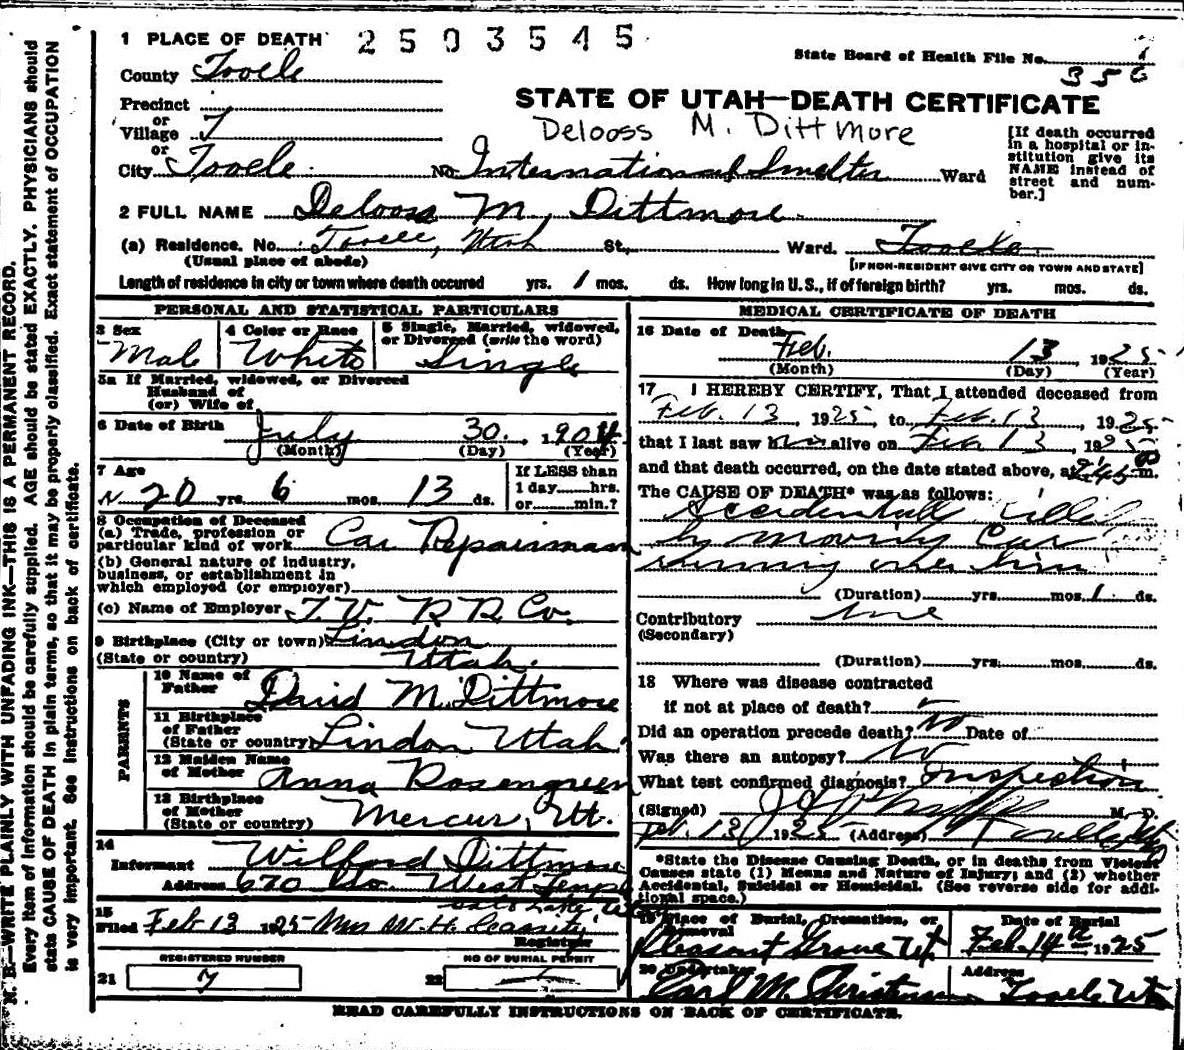 1 PLACE OF DEATH 2503545
State Board of Health File No. 356
County Tooele
STATE OF UTAH—DEATH CERTIFICATE
Precinct
or
Village
or
Delooss M. Dittmore
[If death occurred in a hospital or institution give its NAME instead of street and number.]
City Tooele No. International Smelter Ward
2 FULL NAME Delooss M. Dittmore
(a) Residence. No. Tooele, Utah St., Ward. Tooele
(Usual place of abode) [IF NON-RESIDENT GIVE CITY OR TOWN AND STATE]
Length of residence in city or town where death occured yrs. 1 mos. ds. How long in U. S., if of foreign birth? yrs. mos. ds.
PERSONAL AND STATISTICAL PARTICULARS
3 Sex 4 Color or Race 5 Single, Married, widowed, or Divorced (write the word)
Male White Single
5a If Married, widowed, or Divorced
Husband of
(or) Wife of
6 Date of Birth July 30, 1904
(Month) (Day) (Year)
7 Age If LESS than
1 day hrs.
20 yrs 6 mos. 13 ds. or min.?
8 Occupation of Deceased
(a) Trade, profession or
particular kind of work Car Repairman
(b) General nature of industry,
business, or establishment in
which employed (or employer)
(c) Name of Employer T. V. R R Co.
9 Birthplace (City or town) Lindon
(State or country) Utah.
PARENTS
10 Name of
Father David M. Dittmore
11 Birthplace
of Father
(State or country) Lindon Utah
12 Maiden Name
of Mother Anna Rosengreen
13 Birthplace
of Mother
(State or country) Mercur, Ut.
14
Informant Wilford Dittmore
Address 670 So. West Temple
Salt Lake
15
Filed Feb 13 1925 Mrs W. H. Cassity
Registrar
REGISTERED NUMBER NO OF BURIAL PERMIT
21 7 22
MEDICAL CERTIFICATE OF DEATH
16 Date of Death
Feb. 13, 1925
(Month) (Day) (Year)
17 I HEREBY CERTIFY, That I attended deceased from
Feb. 13 1925 to Feb. 13, 1925
that I last saw him alive on Feb 13, 1925
and that death occurred, on the date stated above, at 2:45 P m.
The CAUSE OF DEATH* was as follows:
Accidentally killed
by moving Car
running over him
(Duration) yrs. mos. 1 ds.
Contributory none
(Secondary)
(Duration) yrs. mos. ds.
18 Where was disease contracted
if not at place of death?
Did an operation precede death? No Date of
Was there an autopsy? No
What test confirmed diagnosis? Inspection
(Signed) M. D.
Feb. 13 1925 (Address) Tooele, Ut
*State the Disease Causing Death, or in deaths from Violent
Causes state (1) Means and Nature of Injury; and (2) whether
Accidental, Suicidal or Homicidal. (See reverse side for addi-
tional space.)
19 Place of Burial, Cremation, or Removal Date of Burial
Pleasant Grove Ut. Feb. 14th, 1925
20 Undertaker Address
Carl M. Tooele Ut
READ CAREFULLY INSTRUCTIONS ON BACK OF CERTIFICATE.
N. B.—WRITE PLAINLY WITH UNFADING INK—THIS IS A PERMANENT RECORD.
Every item of information should be carefully supplied. AGE should be stated EXACTLY. PHYSICIANS should
state CAUSE OF DEATH in plain terms, so that it may be properly classified. Exact statement of OCCUPATION
is very important. See instructions on back of certificate.